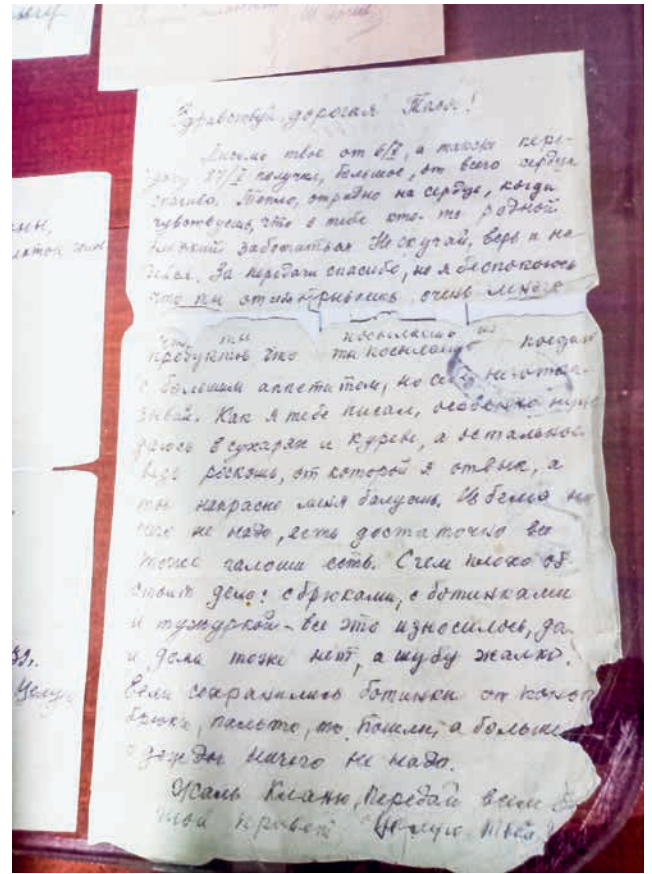 Здравствуй, дорогая Тася!
Письмо твое от 6/X, а также пере-
дачу 27/X получил, большое, от всего сердца
спасибо. Тепло, отрадно на сердце, когда
чувствуешь, что о тебе кто-то родной
близкий заботиться Не скучай, верь и на
дейся. За передачи спасибо, но я беспокоюсь
что ты отрываешь очень много
что ты посылаешь
продуктов что ты посылаешь поедаю
с большим аппетитом, но себе ничего не
зывай. Как я тебе писал, особенно нуж
даюсь в сухарях и куреве, а остальное
ведь роскошь, от которой я отвык, а
ты напрасно меня балуешь. Из белья ни
чего не надо, есть достаточно все
тоже галоши есть. С чем плохо об-
стоит дело: с брюками, с ботинками
и тужуркой - все это износилось, да
и дома тоже нет, а шубу жалко.
Если сохранились ботинки от
брюки, пальто, то пошли, а больше
одежды ничего не надо.
Жаль Кланю, передай всем
мой привет Целую Твой
39г.
Целую